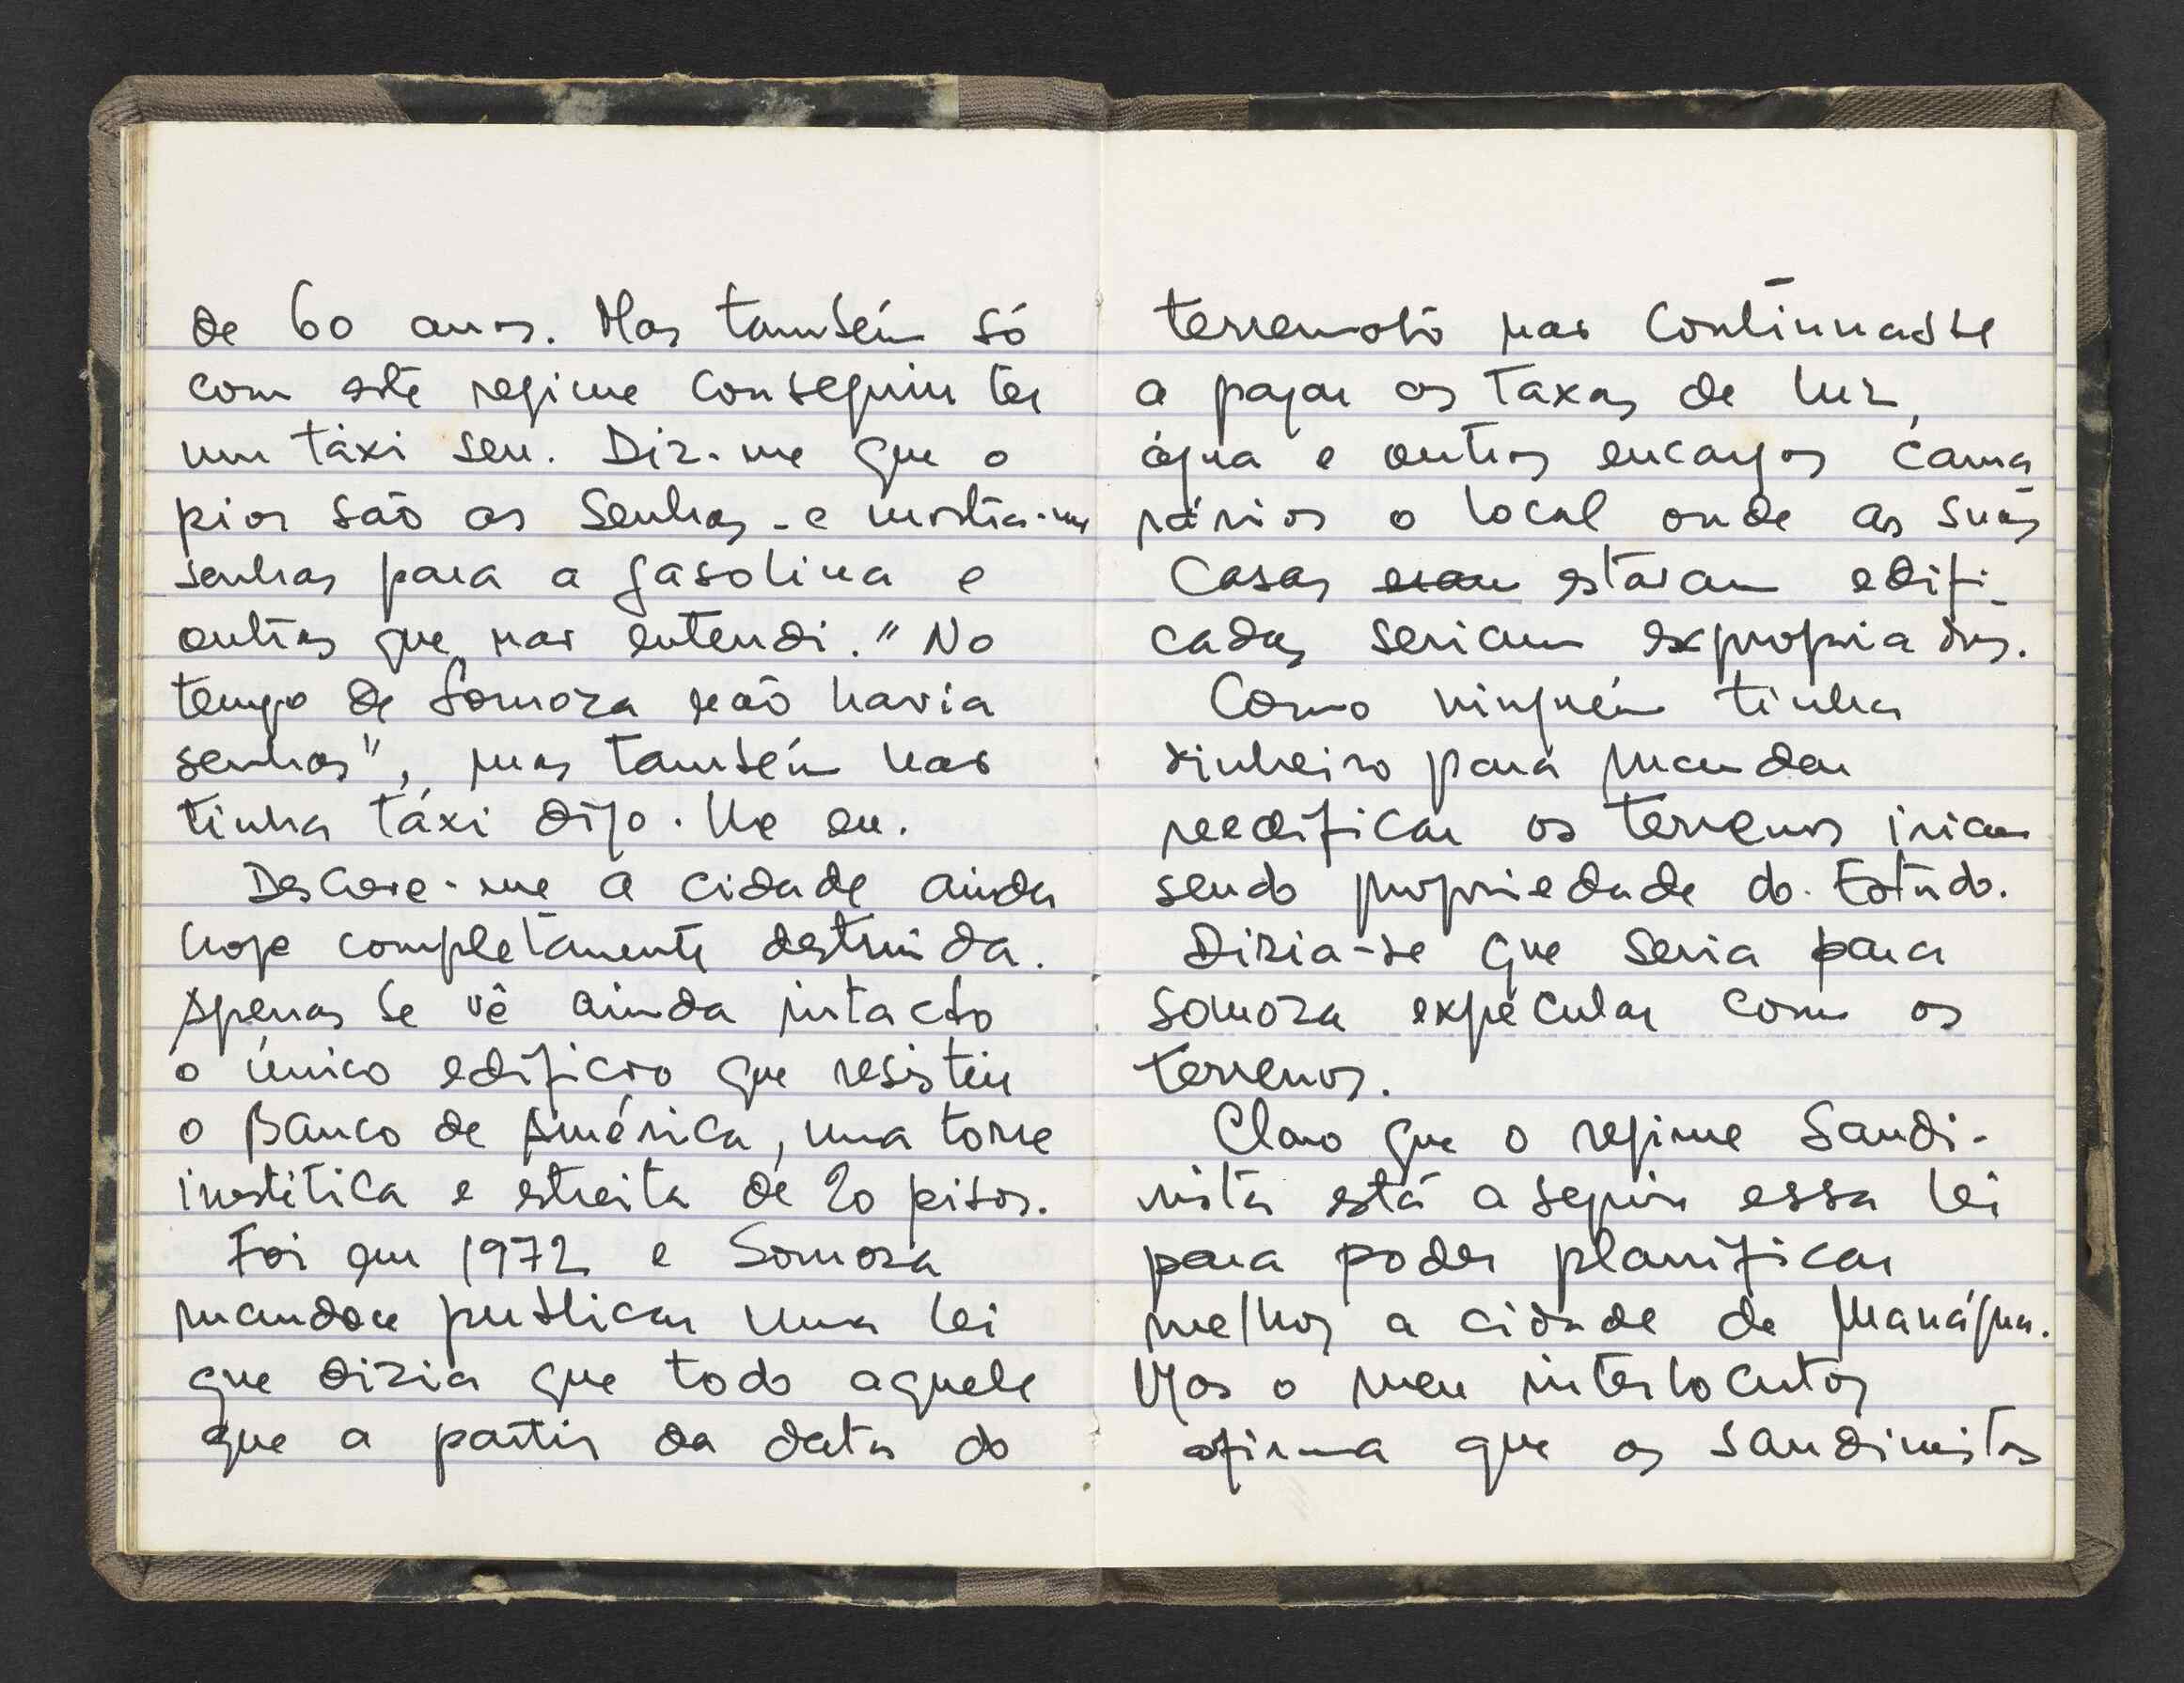 de 60 anos. Mas também só
com este regime conseguiu ter
um táxi seu. Diz-me que o
pior são as senhas - e mostra-me
senhas para a gasolina e
outras que não entendi. "No
tempo de Somoza não havia
senhas", mas também não
tinha táxi digo-lhe eu.
Descreve-me a cidade ainda
hoje completamente destruída.
Apenas se vê ainda intacto
o único edifício que resistiu
o Banco de América, uma torre
inestética e estreita de 20 pisos.
Foi em 1972 e Somoza
mandou publicar uma lei
que dizia que todo aquele
que a partir da data do
terremoto não continuasse
a pagar as taxas de luz,
água e outros encargos cama
rários o local onde as suas
casas eram estavam edifi-
cadas seriam expropriadas.
Como ninguém tinha
dinheiro para mandar
reedificar os terrenos iriam
sendo propriedade do Estado.
Dizia-se que seria para
Somoza expecular com os
terrenos.
Claro que o regime Sandi-
nista está a seguir essa lei
para poder planificar
melhor a cidade de Manágua.
Mas o meu interlocutor
afirma que os sandinistas